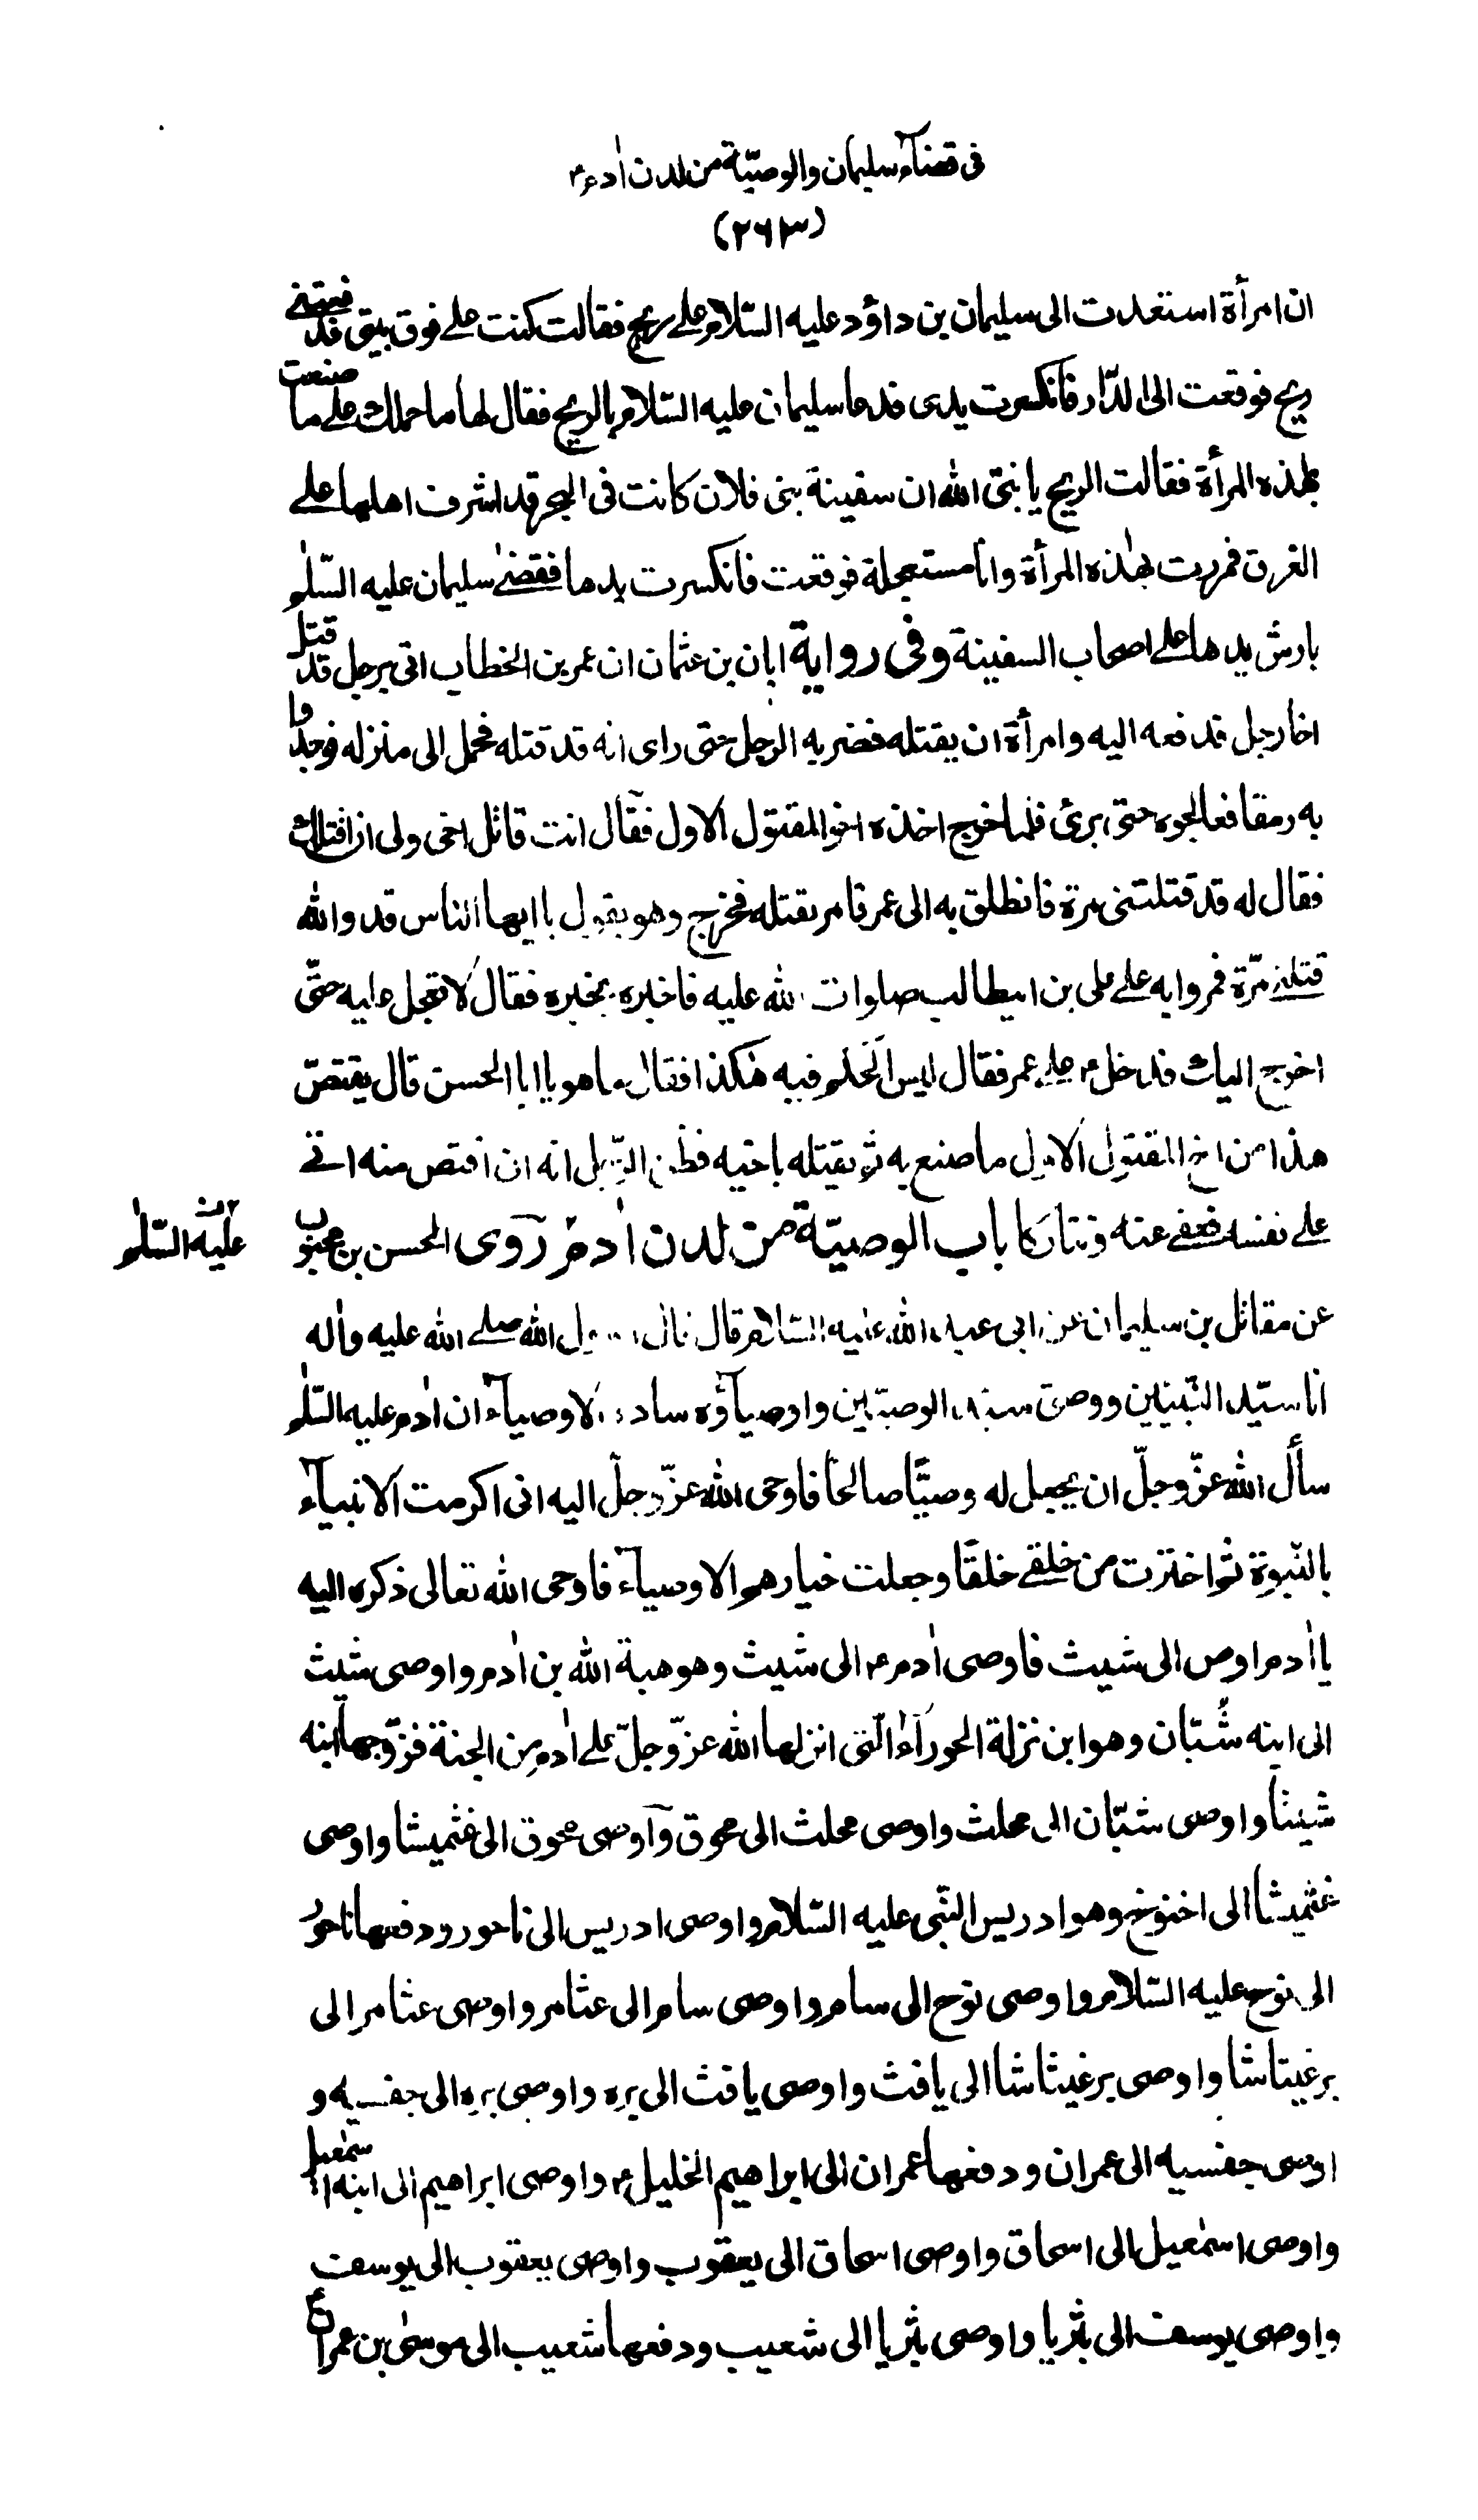 فى قضآء سليمان والوصيّة من لدن اٰدم ع
(٢٦٣)
ان امرأة استعدت الى سليمان بن داؤد عليه السّلام على ريح فقالت كنت على فوق بيتى فدفعتنى
ريح فوقعت الى الدّار فانكسرت يدى فدعا سليمان عليه السّلام بالريح فقال لها ما حملك على ما صنعت
بهذه المرأة فقالت الريح يا نبىّ الله ان سفينة بنى فلان كانت فى البحر قد اشرف اهلها على
الغرق فمررت بهٰذه المرأة وانا مستعجلة فوقعت فانكسرت يدها فقضىٰ سليمان عليه السّلٰم
بارش يدها على اصحاب السفينة وفى رواية ابان بن عثمان ان عمر بن الخطاب اتى برجل قد قتل
اخا رجل فدفعه اليه وامرأة ان يقتله فضربه الرجل حتى راى انه قد قتله فحمل الى منزله فوجدوا
به رمقا فعالجوه حتى برئ فلما خرج اخذه اخو المقتول الاول فقال انت قاتل اخى ولى ان اقتلك
فقال له قد قتلتنى مرة فانطلق به الى عمر فامر بقتله فخرج وهو يقول يا ايها الناس قد والله
قتلنى مرّة فمروا به على على بن ابيطالب صلوات الله عليه فاخبره بخبره فقال لا تعجل عليه حتّى
اخرج اليك فدخل ع على عمر فقال ليس الحكم فيه هٰكذا فقال ما هو يا ابا الحسن قال يقتصّ
هذا من اخ المقتول الاول ما صنع به ثم يقتله باخيه فظن الرّجل انه ان اقتص منه اتى
على نفسه فعفى عنه وتتاركا باب الوصيّة من لدن اٰدم ع روى الحسن بن محبوب
عليه السّلٰم
عن مقاتل بن سليمان عن ابى عبد الله عليه السّلام قال قال رسول الله صلى الله عليه واٰله
انا سيّد النّبيّين ووصيّى سيد الوصيّين واوصيآؤه سادة الاوصيآء ان اٰدم عليه السّلٰم
سأل الله عزّ وجلّ ان يجعل له وصيًّا صالحًا فاوحى الله عزّ وجلّ اليه انى اكرمت الانبيآء
بالنّبوة ثم اخترت من خلقى خلقًا وجعلت خيارهم الاوصيآء فاوحى الله تعالى ذكره اليه
يا اٰدم اوص الى شيث فاوصى اٰدم ع الى شيث وهو هبة الله بن اٰدم واوصى شيث
الى ابنه شَبّان وهو ابن نزلة الحورآء الّتى انزلها الله عزّ وجلّ على اٰدم من الجنة فزوّجها ابنه
شيثا واوصى شبّان الى محلث واوصى محلث الى محوق واوصى محوق الى غثميشا واوصى
غثميشا الى اخنوخ وهو ادريس النّبى عليه السّلام واوصى ادريس الى ناحور ودفعها ناحور
الى نوح عليه السّلام واوصى نوح الى سام واوصى سام الى عثامر واوصى عثامر الى
برغيثاشا واوصى برغيثاشا الى يافث واوصى يافث الى بره واوصى بره الى جفسيه و
اوصى جفسيه الى عمران ودفعها عمران الى ابراهيم الخليل ع واوصى ابراهيم الى ابنه اسمٰعيل
واوصى اسمٰعيل الى اسحاق واوصى اسحاق الى يعقوب واوصى يعقوب الى يوسف
واوصى يوسف الى بثريا واوصى بثريا الى شعيب ودفعها شعيب الى موسىٰ بن عمران ع